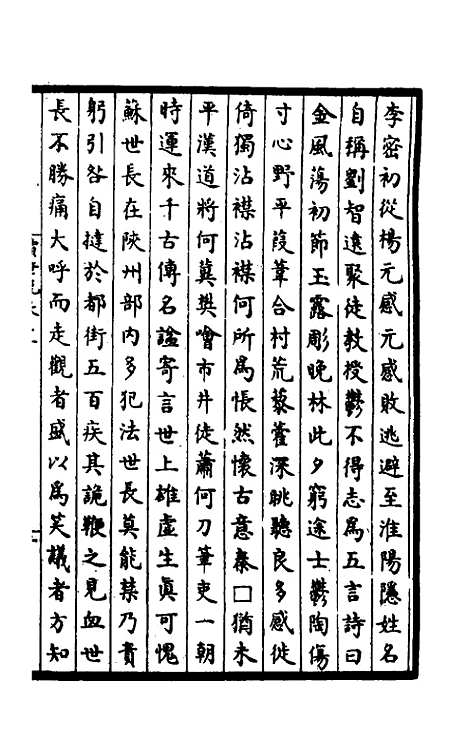 李密初從楊元感元感敗逃避至淮陽隱姓名
自稱劉智遠聚徒教授鬱不得志爲五言詩曰
金風蕩初節玉露彫晚林此夕窮途士鬱陶傷
寸心野平葭葦合村荒藜藿深眺聽良多感徙
倚獨沾襟沾襟何所爲悵然懷古意秦□猶未
平漢道將何冀樊噲市井徒蕭何刀筆吏一朝
時運來千古傳名諡寄言世上雄虛生眞可愧
蘇世長在陝州部內多犯法世長莫能禁乃責
躬引咎自撻於都街五百疾其詭鞭之見血世
長不勝痛大呼而走觀者盛以爲笑議者方知